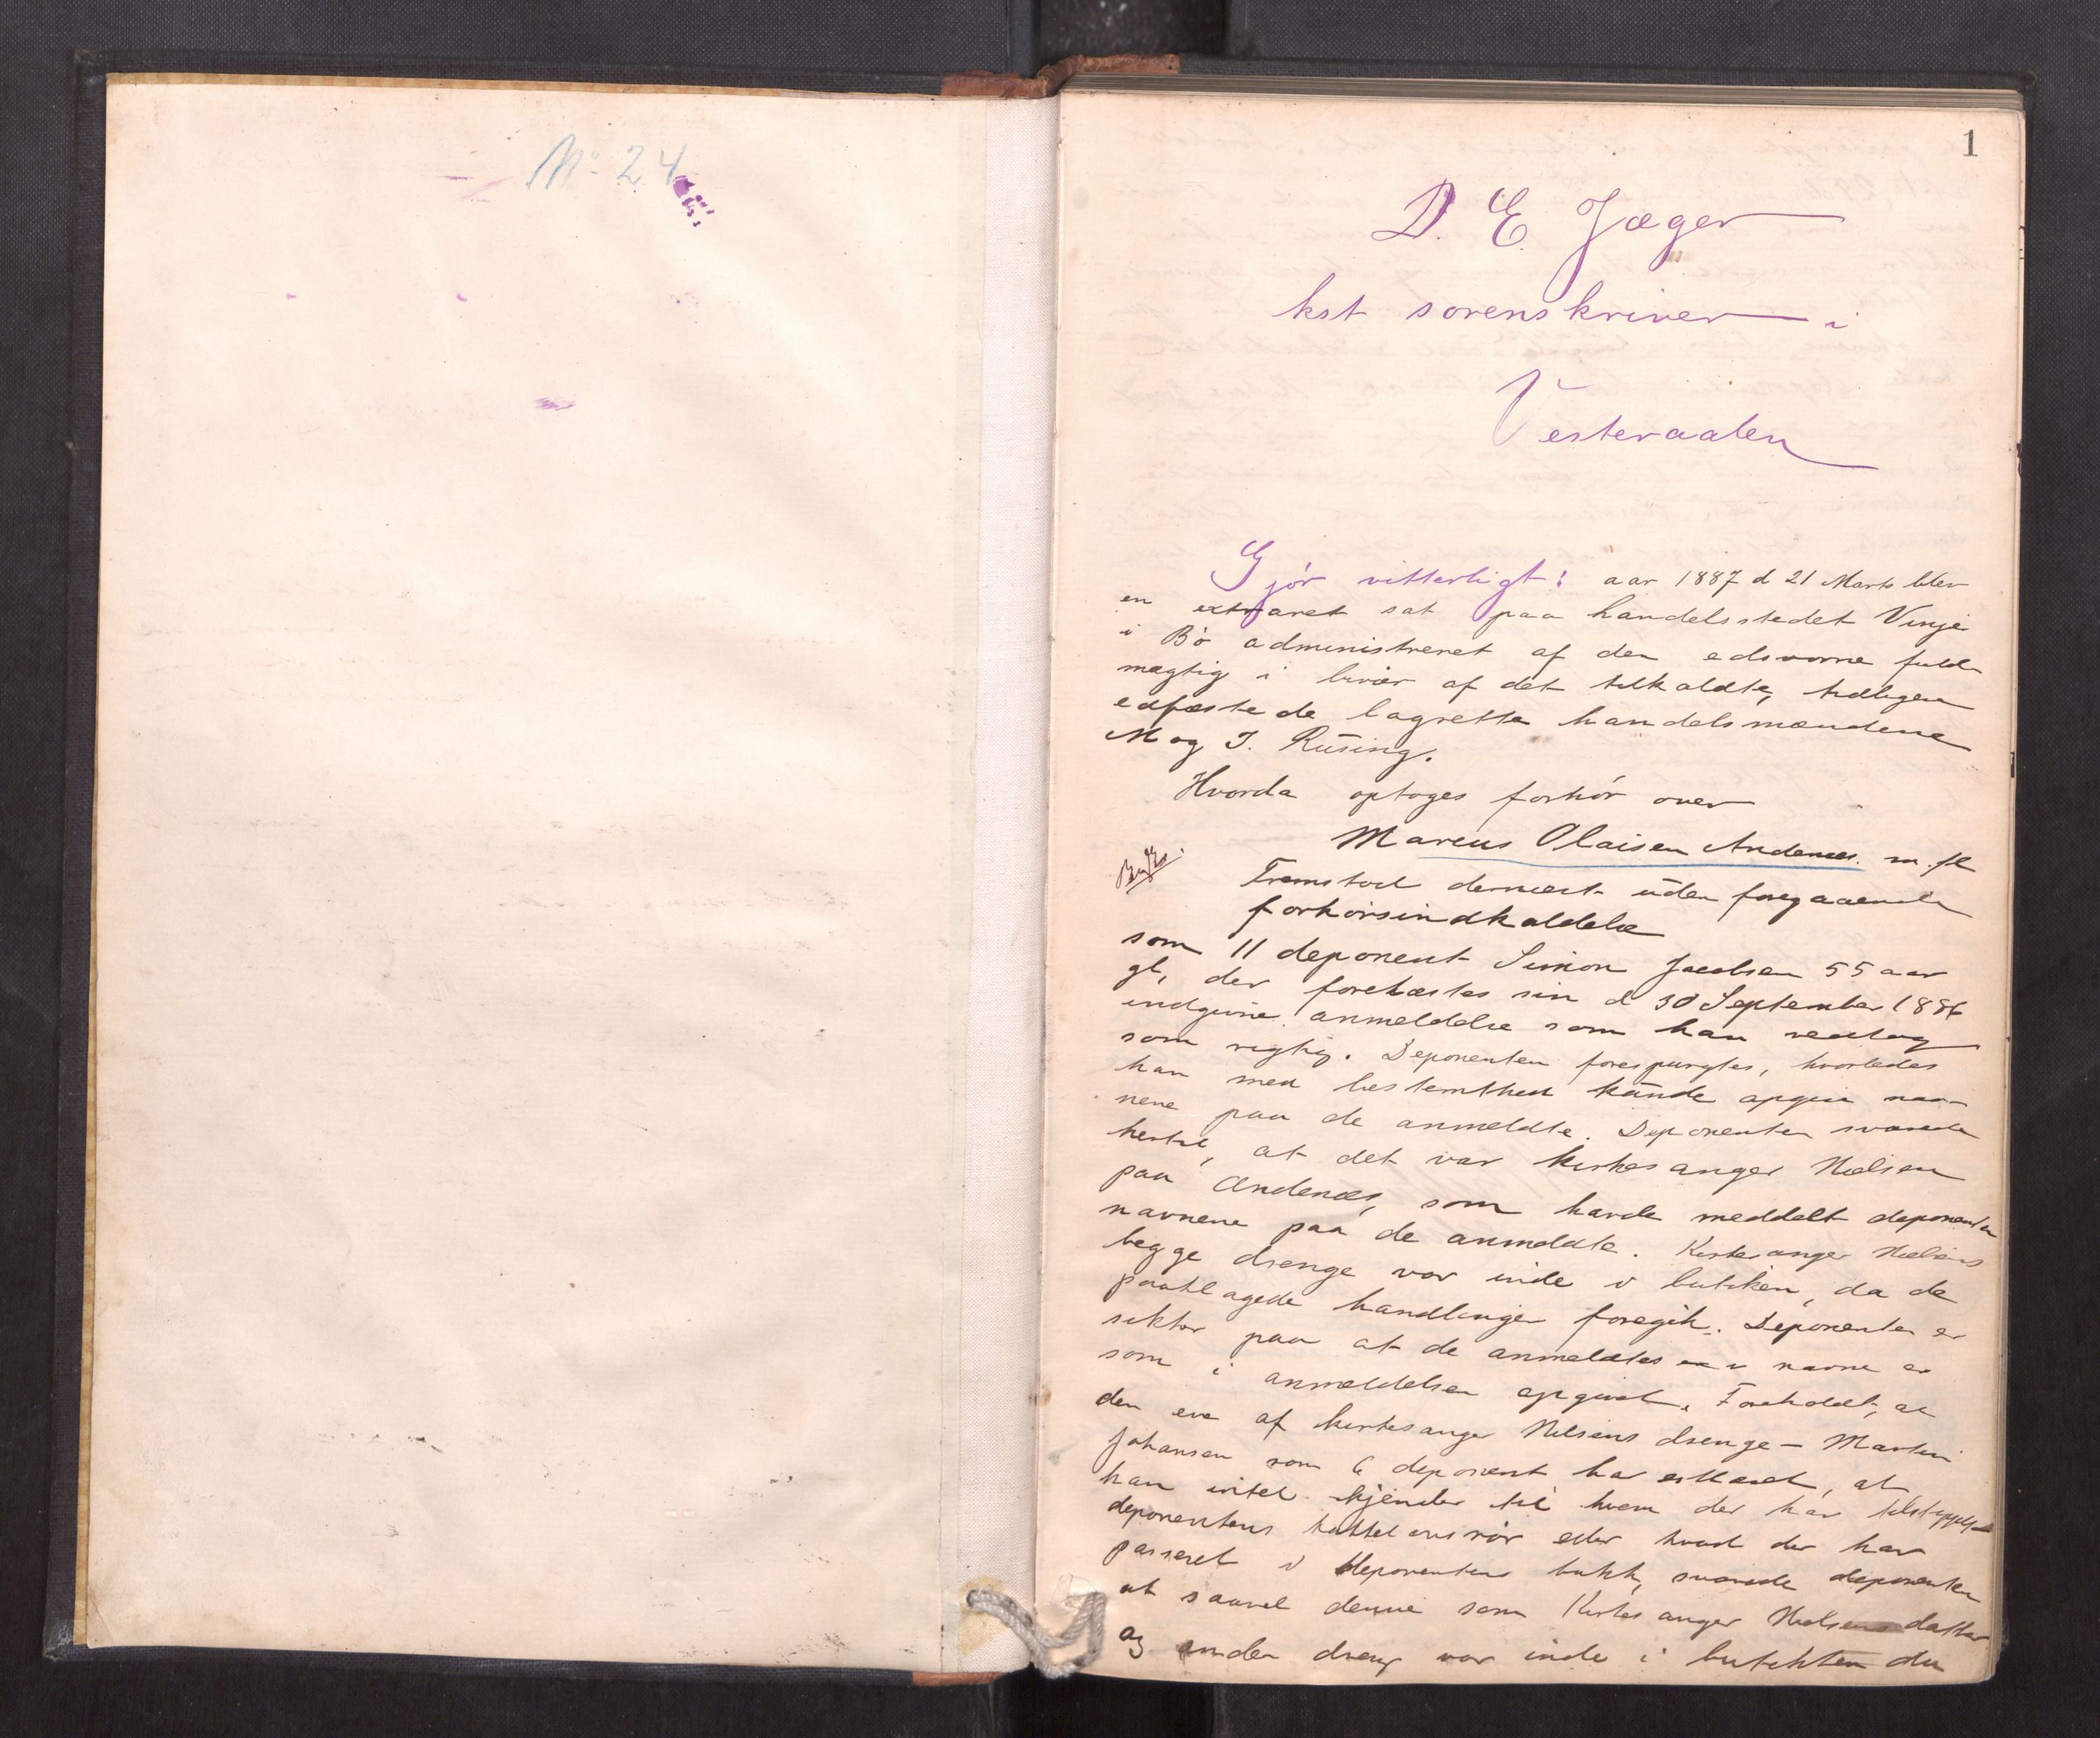 No 24
1
D. E. Jæger
kst sorenskriver i
Vesteraalen
Gjør vitterligt: aar 1887 d 21 Marts blev
en extraret sat paa handelsstedet Vinje
i Bø administreret af den edsvorne fuld
mægtig i bivær af det tilkaldte, tidligere
edfæstede lagrette handelsmændene
M og J. Rüsing.
Hvorda optoges forhør over
Marcus Olaisen Andenæs m. fl
Fremstod dernæst uden foregaaende
forhørsindkaldelse
som 11 deponent Simon Jacobsen 55 aar
gl, der forelæstes sin d 30 September 1886
indgivne anmeldelse som han vedtog
som rigtig. Deponenten forespurgtes, hvorledes
han med bestemthed kunde opgive nav-
nene paa de anmeldte. Deponenten svarede
hertil, at det var kirkesanger Nielsen
paa Andenæs, som havde meddelt deponenten
navnene paa de anmeldte. Kirkesanger Nielsens
begge drenge var inde i butiken, da de
paaklagede handlinger foregik. Deponenten er
sikker paa at de anmeldtes navne er
som i anmeldelsen opgivet. Foreholdt, at
den ene af kirkesanger Nielsens drenge – Martin
Johansen som 6 deponent har erklæret, at
han intet kjender til hvem der har tilstoppet
deponentens kakkelovnsrør eller hvad der har
passeret i deponentens butik, svarede deponenten
at saavel denne som Kirkesanger Nielsens datter
og anden dreng var inde i butikken da